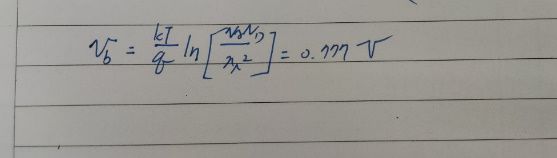 V_b = kT/q ln[N_A N_D / n_i^2] = 0.777 V